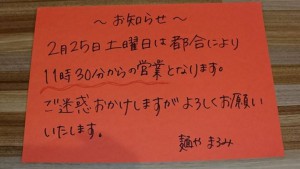 ～お知らせ～
2月25日土曜日は都合により
11時30分からの営業となります。
ご迷惑おかけしますがよろしくお願い
いたします。
麺や まるみ